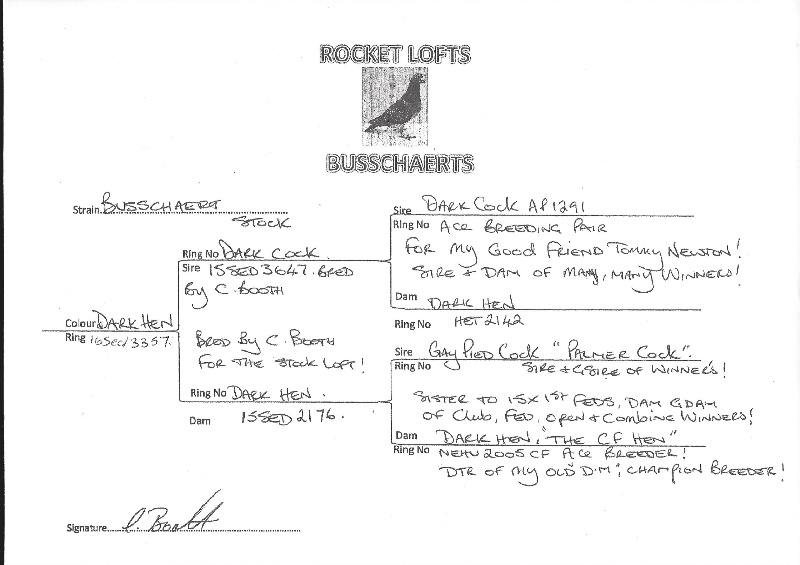 ROCKET LOFTS
BUSSCHAERTS
Strain BUSSCHAERT
STOCK
Ring No DARK COCK.
Sire 15SED3647. BRED
BY C. BOOTH
Colour DARK HEN
Ring 16Sed 3357.
BRED BY C. BOOTH
FOR THE STOCK LOFT!
Ring No DARK HEN.
Dam 15SED 2176.
Sire DARK COCK AP1291
Ring No ACE BREEDING PAIR
FOR MY GOOD FRIEND TOMMY NEWTON!
SIRE & DAM OF MANY, MANY WINNERS!
Dam DARK HEN
Ring No HET 2142
Sire GAY PIED COCK "PALMER COCK".
Ring No SIRE & GSIRE OF WINNERS!
SISTER TO 15X 1ST FEDS, DAM GDAM
OF CLUB, FED, OPEN & COMBINE WINNERS!
Dam DARK HEN, "THE CF HEN"
Ring No NEHU 2005 CF ACE BREEDER!
DTR OF MY OLD "D.M", CHAMPION BREEDER!
Signature C. Booth